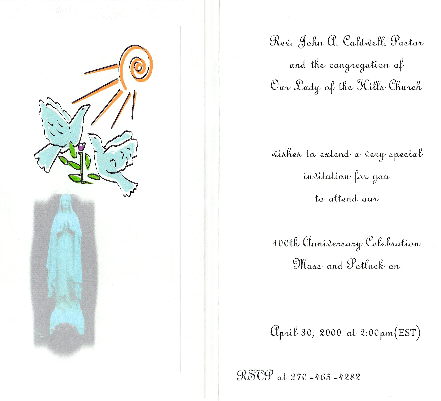 Rev. John A. Caldwell, Pastor
and the congregation of
Our Lady of the Hills Church
wishes to extend a very special
invitation for you
to attend our
100th Anniversary Celebration
Mass and Potluck on
April 30, 2000 at 2:00pm(EST)
RSVP at 270-465-4282